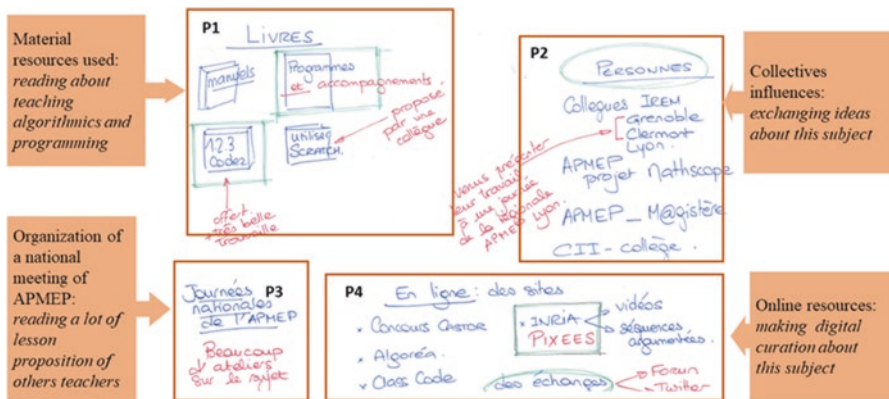 Material
resources used:
reading about
teaching
algorithmics and
programming
P1
LIVRES
manuels
Programmes
et accompagnements.
1.2.3
Codez
utiliser
SCRATCH.
proposé
par une
collègue
offert
très belle
trouvaille
P2
PERSONNES
Collègues IREM
Grenoble
Clermont
Lyon.
venus présenter
leur travail
à une journée
de la régionale
APMEP Lyon.
APMEP
projet Mathscope
APMEP_M@gistère
CII-collège.
Collectives
influences:
exchanging ideas
about this subject
Organization of
a national
meeting of
APMEP:
reading a lot of
lesson
proposition of
others teachers
P3
Journées
nationales
de l'APMEP
Beaucoup
d'ateliers
sur le sujet
P4
En ligne : des sites
× Concours CASTOR
× Algoréa
× Class Code
× INRIA
PIXEES
vidéos
séquences
argumentées.
des échanges
Forum
Twitter
Online resources:
making digital
curation about
this subject